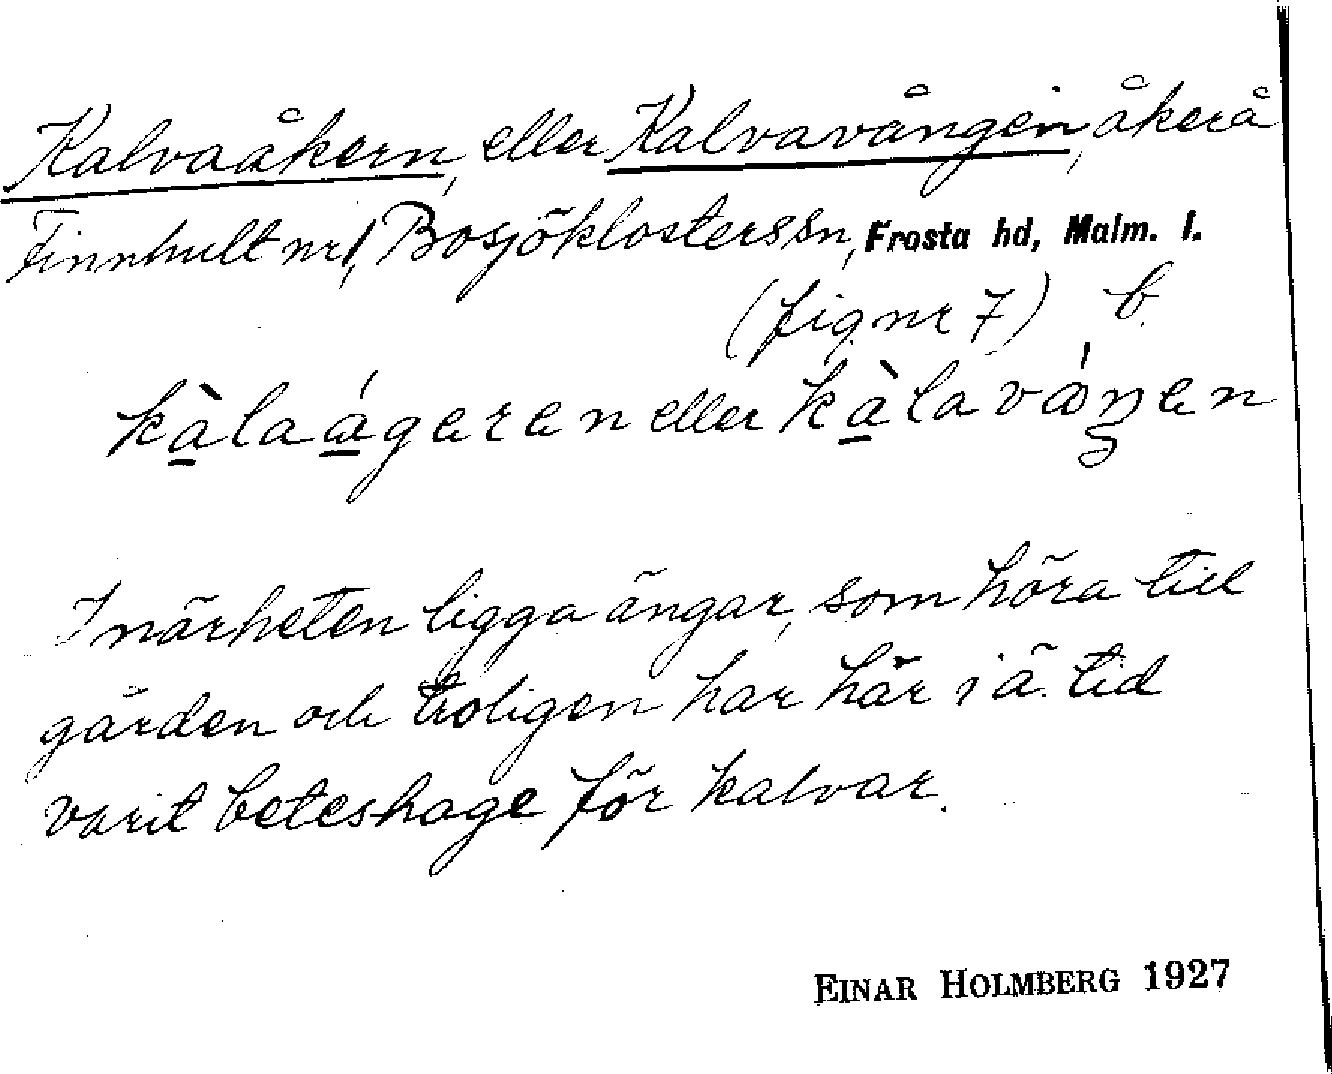 Kalvaåkern, eller Kalvavången, åker å
Finnhult nr 1, Bosjöklosters sn, Frosta hd, Malm. l.
(fig nr 7) b.
kàlaågeren eller kàlavåŋen
I närheten ligga ängar, som höra till
gården och troligen har här i ä. tid
varit beteshage för kalvar.
EINAR HOLMBERG 1927